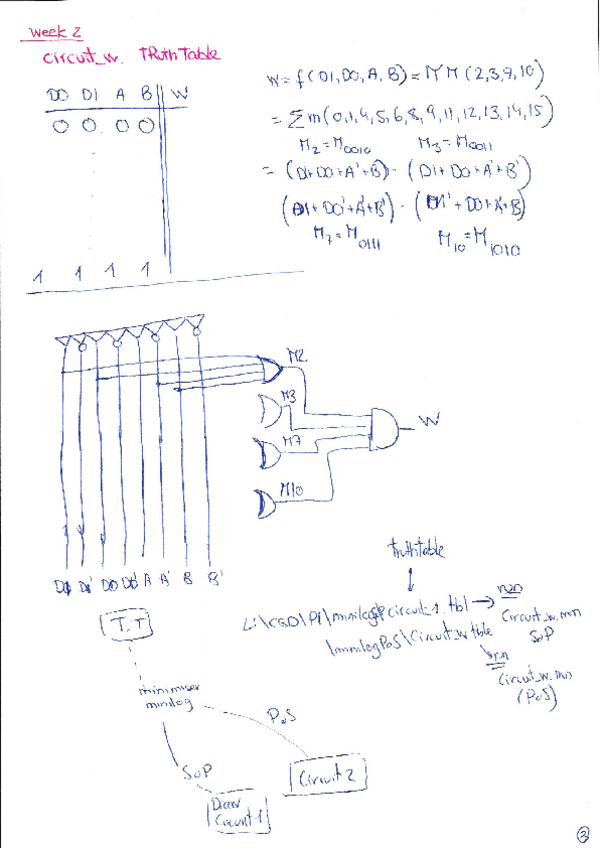 Week 2
Circuit_W. Truth Table
D0 D1 A B W
0 0 0 0
1 1 1 1
W = f(D1, D0, A, B) = ΠM(2,3,7,10)
= Σm(0,1,4,5,6,8,9,11,12,13,14,15)
M2 = M0010 M3 = M0011
= (D1+D0+A'+B)·(D1+D0+A'+B')
(D1+D0'+A'+B')·(D1'+D0+A'+B)
M7 = M0111 M10 = M1010
M2
M3
M7
M10
W
D1 D1' D0 D0' A A' B B'
Truth Table
L:\CSD\P1\minilog circuit_1.tbl → run
\minilogPoS\Circuit_W.tble
Circuit_w.min
SoP
run
Circuit_w.min
(PoS)
T.T
minimiser
minilog
PoS
SoP
Circuit 2
Draw
Circuit 1
3